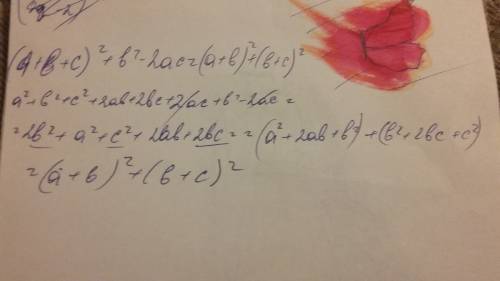 (a+b+c)²+b²-2ac=(a+b)²+(b+c)²
a²+b²+c²+2ab+2bc+2ac+b²-2ac=
=2b²+a²+c²+2ab+2bc==(a²+2ab+b²)+(b²+2bc+c²)
=(a+b)²+(b+c)²